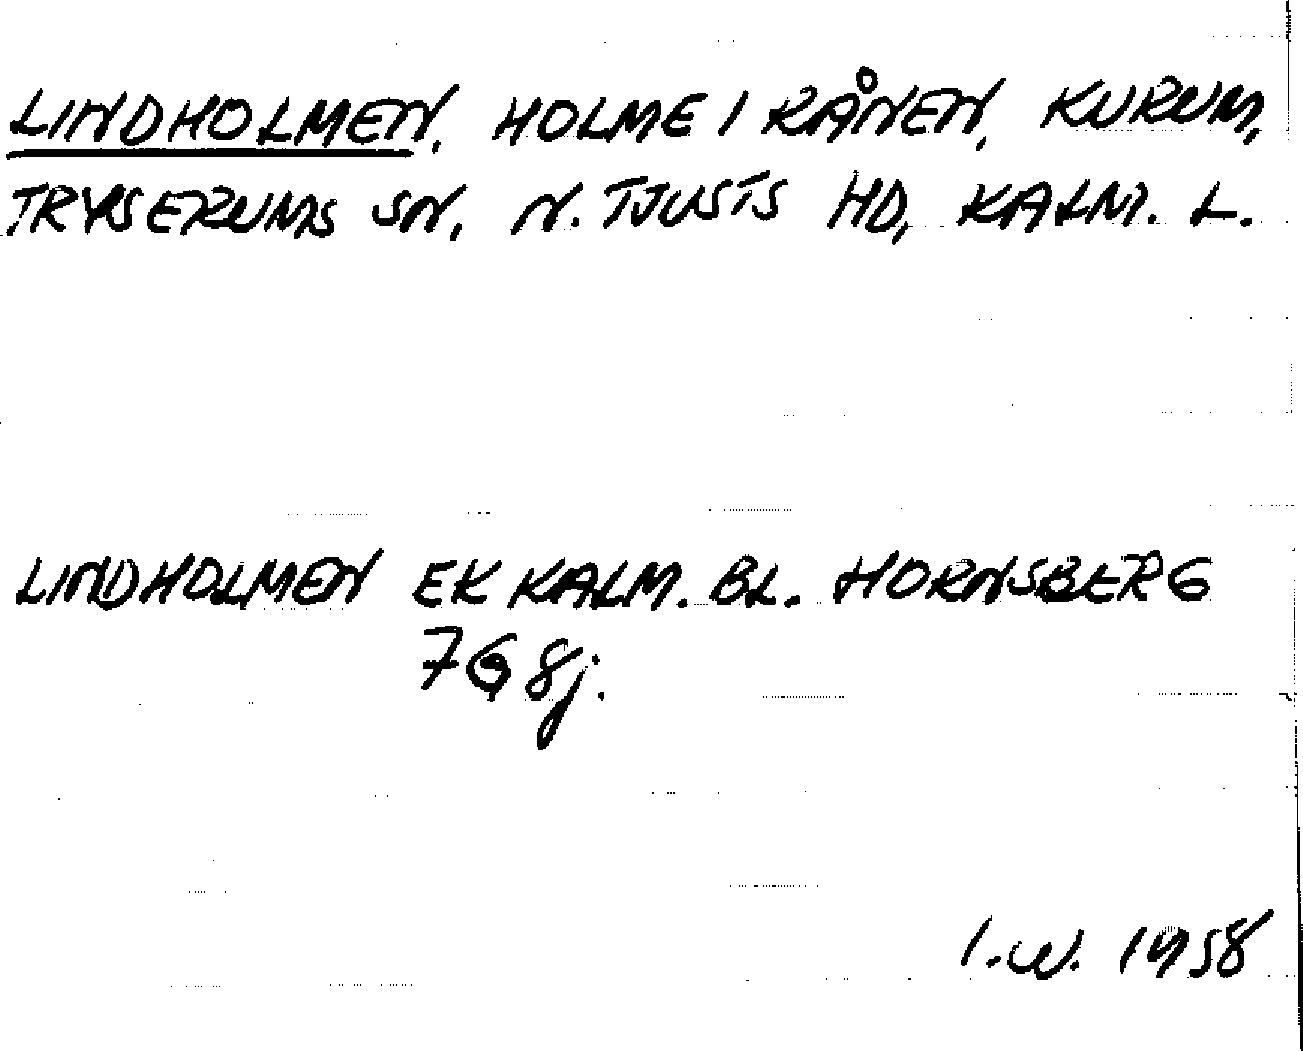 LINDHOLMEN, HOLME I RÅNEN, KURUM,
TRYSERUMS SN, N. TJUSTS HD, KALM. L.
LINDHOLMEN EK KALM. BL. HORNSBERG
7G 8j.
I.W. 1958